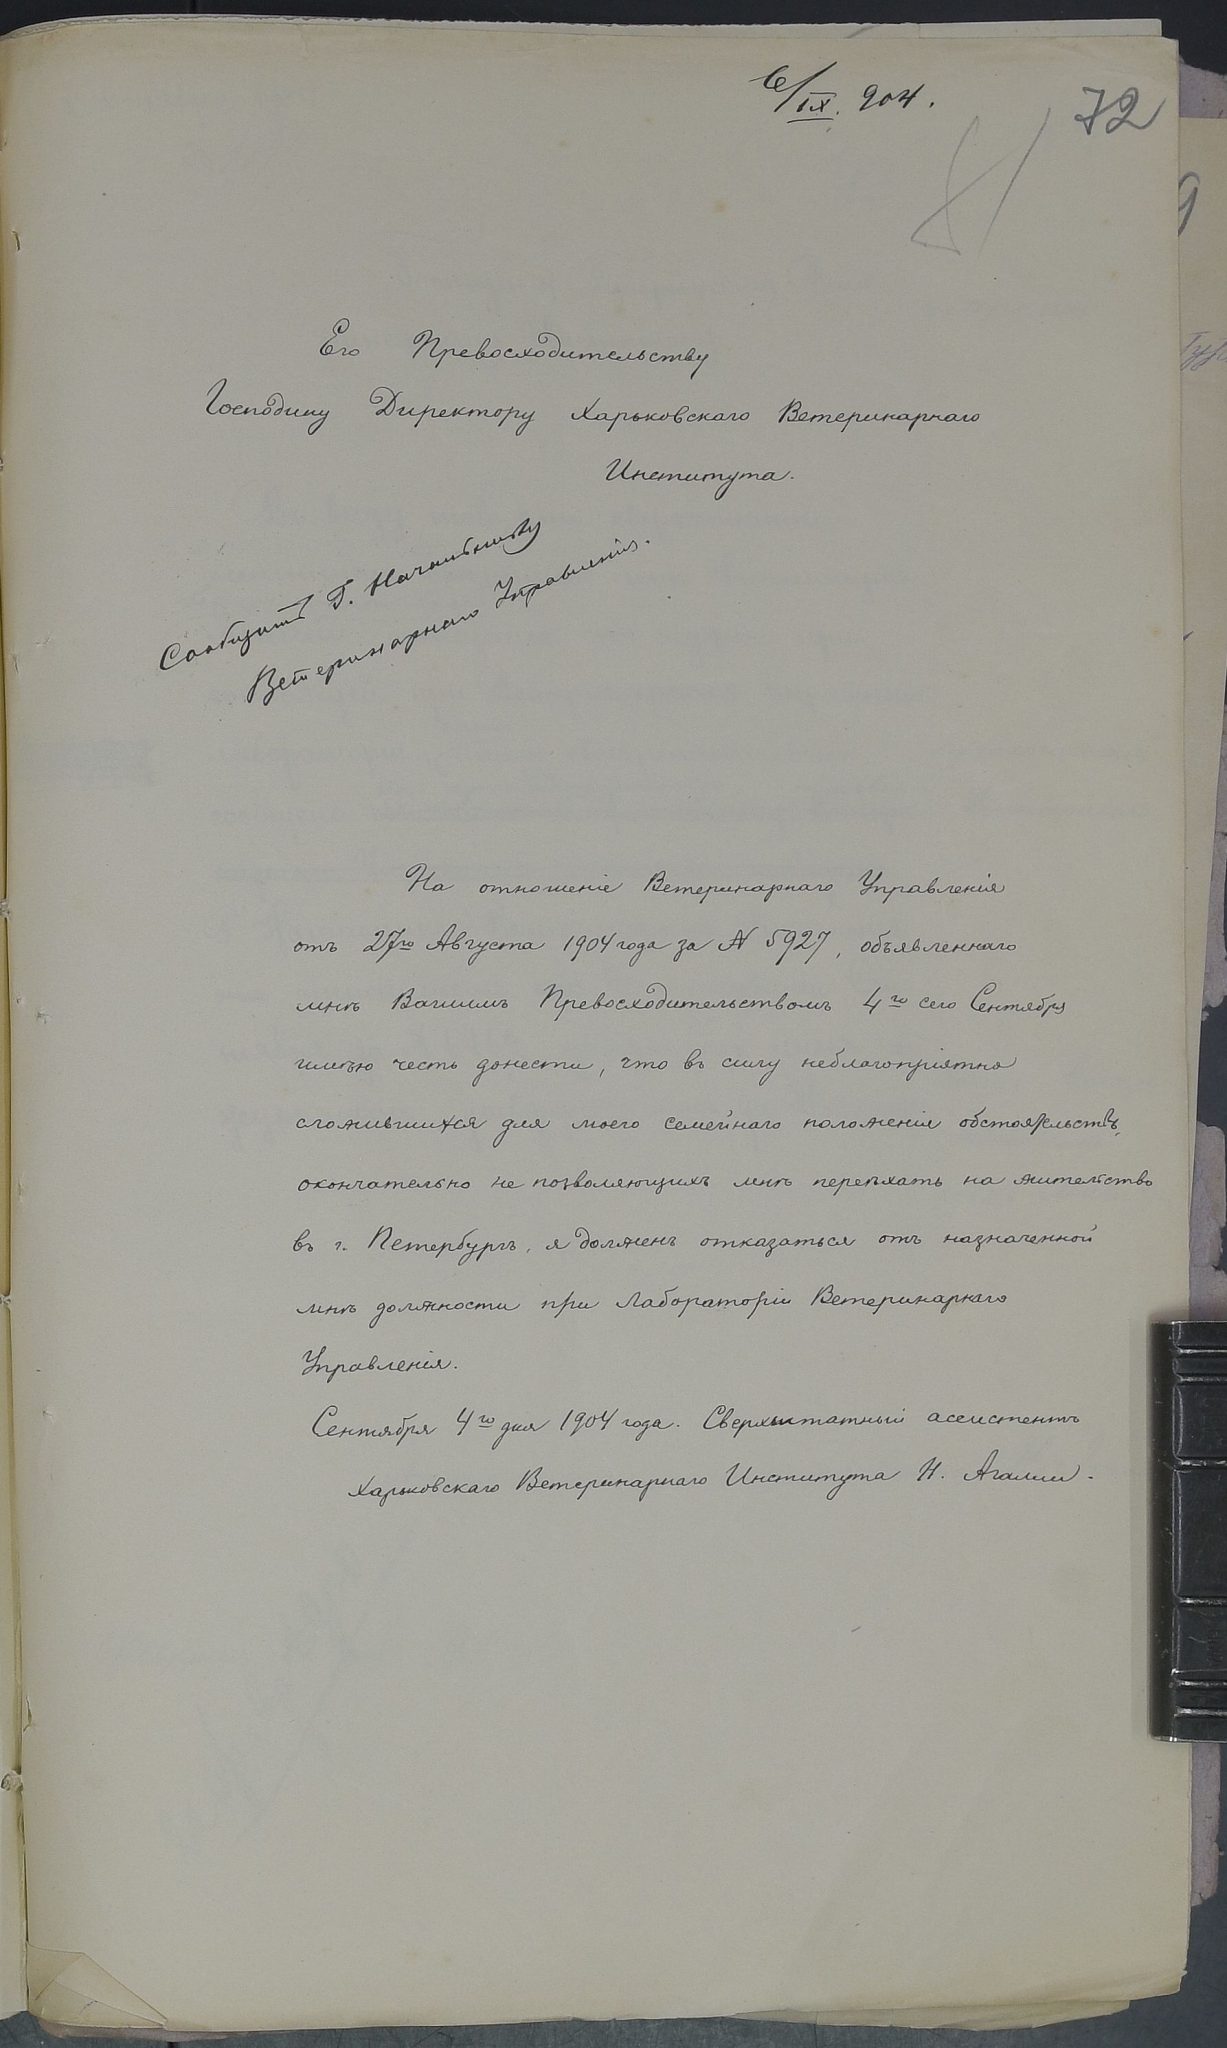 6/IX. 904.
72
81
Его Превосходительству
Господину Директору Харьковскаго Ветеринарнаго
Института.
Сообщить Г. Начальнику
Ветеринарнаго Управленія.
На отношеніе Ветеринарнаго Управленія
отъ 27го Августа 1904 года за № 5927, объявленнаго
мнѣ Вашимъ Превосходительствомъ 4го сего Сентября
имѣю честь донести, что въ силу неблагопріятно
сложившихся для моего семейнаго положенія обстоятельствъ,
окончательно не позволяющихъ мнѣ переѣхать на жительство
въ г. Петербургъ, я долженъ отказаться отъ назначенной
мнѣ должности при Лабораторіи Ветеринарнаго
Управленія.
Сентября 4го дня 1904 года. Сверхштатный ассистентъ
Харьковскаго Ветеринарнаго Института Н. Агалли.